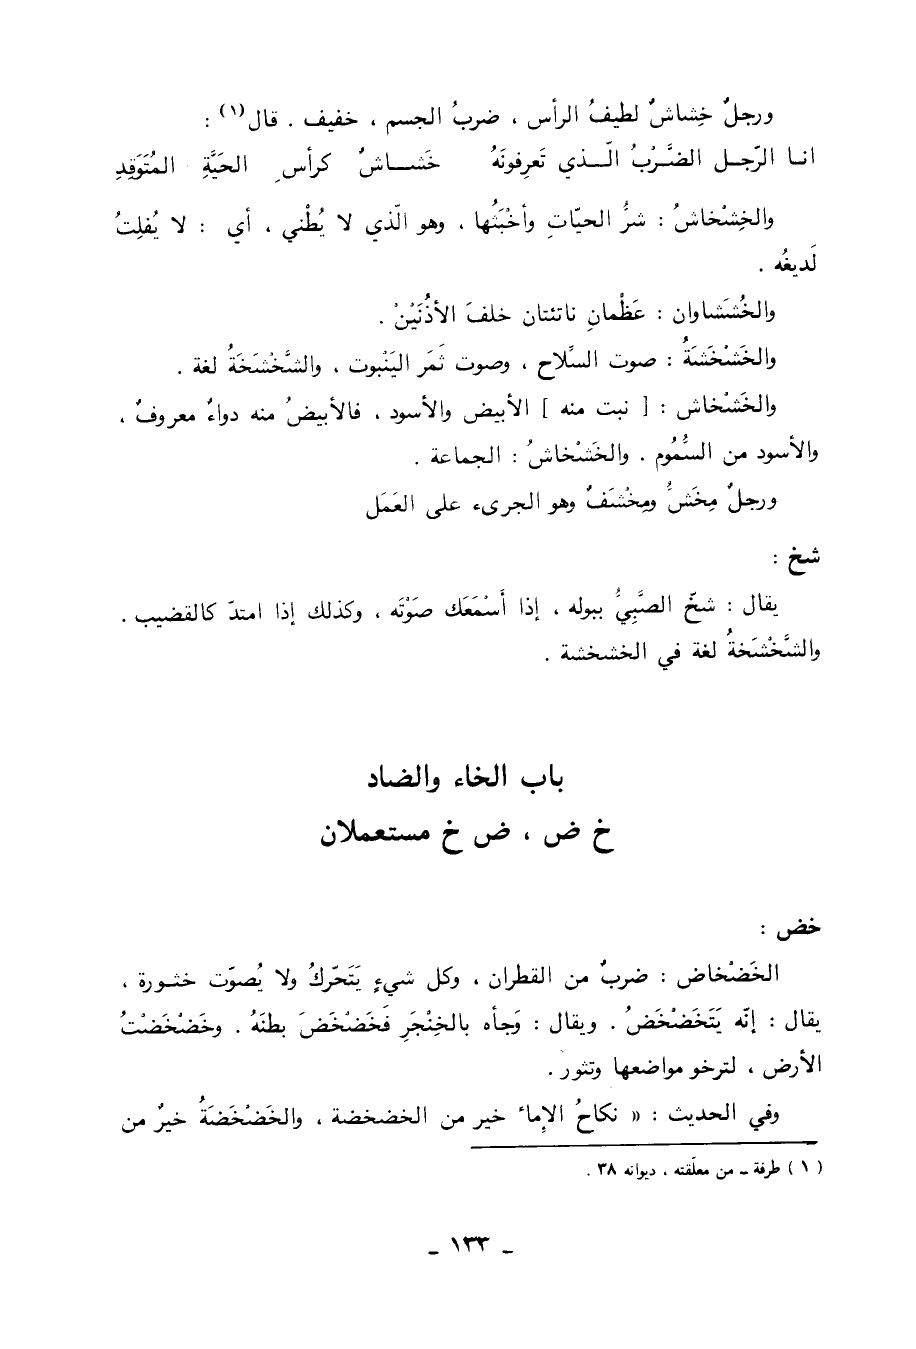 ورجلٌ خِشاشٌ لطيفُ الرأس ، ضربُ الجسم ، خفيف . قال(١) :
انا الرّجل الضَّرْبُ الّذي تَعرِفونَهُ خَشاشٌ كرأسِ الحَيَّةِ المُتَوَقِدِ
والخِشْخاشُ : شرُّ الحيّاتِ وأخْبَثُها ، وهو الّذي لا يُطْني ، أي : لا يُفلِتُ
لَديغُه .
والخُشَشاوان : عَظْمانِ ناتئتان خلفَ الأذُنَيْنْ .
والخَشْخَشَةُ : صوت السِّلاح ، وصوت ثَمَر اليَنْبوت ، والشَّخْشَخَةُ لغة .
والخَشْخاش : [ نبت منه ] الأبيض والأسود ، فالأبيضُ منه دواءٌ معروفٌ ،
والأسود من السُّمُوم . والخَشْخاشُ : الجماعة .
ورجلٌ مِخَشٌّ ومِخْشَفٌ وهو الجرىء على العَمَل
شخ :
يقال : شخّ الصَّبِيُّ ببوله ، إذا أَسْمَعَك صَوْتَه ، وكذلك إذا امتدّ كالقضيب .
والشَّخْشَخةُ لغة في الخشخشة .
باب الخاء والضاد
خ ض ، ض خ مستعملان
خض :
الخَضْخاض : ضربٌ من القطران ، وكل شيءٍ يَتَحّركُ ولا يُصوّت خثورة ،
يقال : إنّه يَتَخَضْخَضُ . ويقال : وَجأه بالخِنْجَرِ فَخَضْخَضَ بطنَهُ . وخَضْخَضْتُ
الأرض ، لترخو مواضعها وتثور .
وفي الحديث : « نكاحُ الإماء خير من الخضخضة ، والخَضْخَضَةُ خيرٌ من
( ١ ) طرفة - من معلّقته ، ديوانه ٣٨ .
- ١٣٣ -